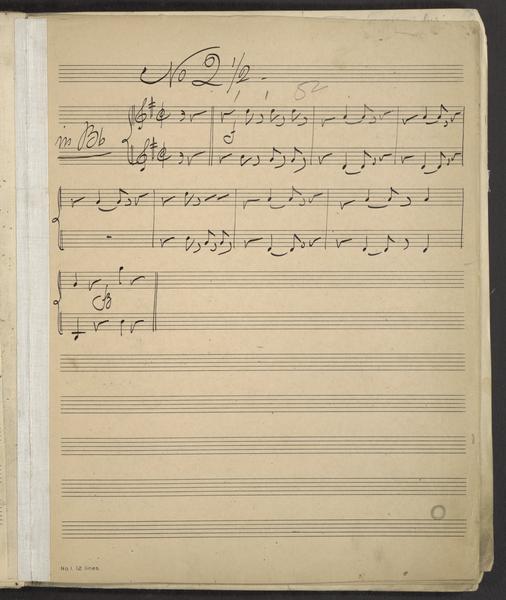 No 2 1/2
52
in Bb
No. 1. 12 lines.